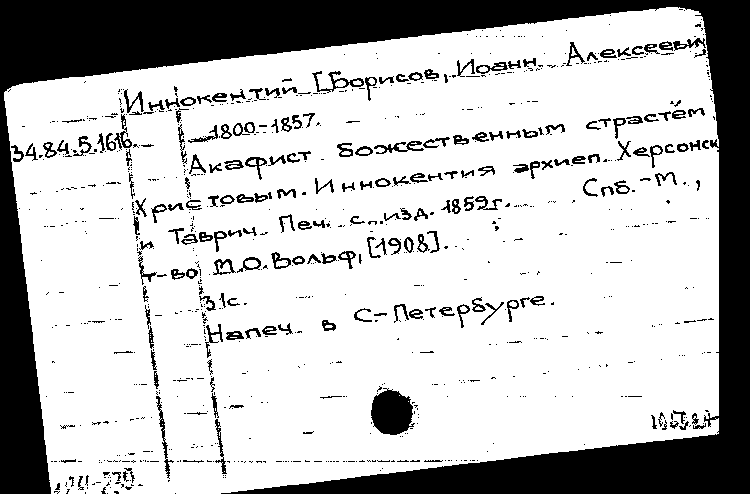 Иннокентий [Борисов, Иоанн Алексееви
34.84.5.1616.
1800-1857.
Акафист божественным страстем
Христовым. Иннокентия архиеп. Херсонск
и Таврич. Печ. с изд. 1859 г. Спб.-М.,
т-во М.О. Вольф, [1908].
31с.
Напеч. в С.-Петербурге.